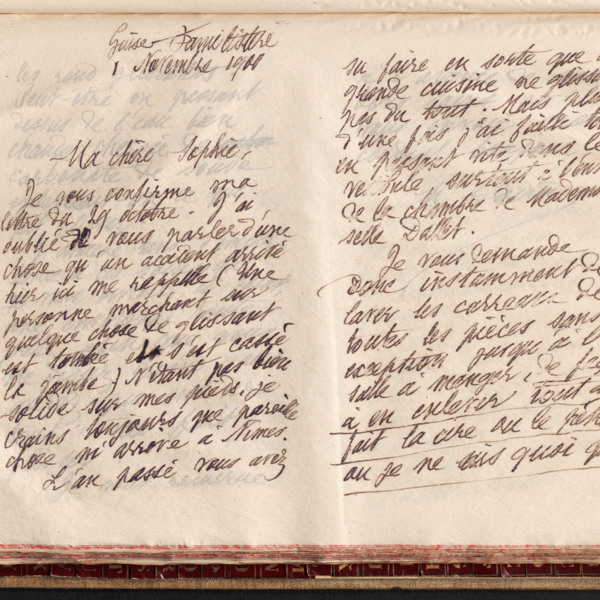 Guise Familistère
1 Novembre 1900
Ma chère Sophie,
Je vous confirme ma
lettre du 29 octobre. J'ai
oublié de vous parler d'une
chose qu'un accident arrivé
hier ici me rappelle (Une
personne marchant sur
quelque chose de glissant
est tombée et s'est cassé
la jambe) N'étant pas bien
solide sur mes pieds, je
crains toujours que pareille
chose m'arrive à Nimes.
L'an passé vous avez
su faire en sorte que
grande cuisine ne gliss
pas du tout. Mais plu
d'une fois j'ai failli
en passant vite dans le
vestibule surtout à l'en
de la chambre de Mademoi
selle Dallet.
Je vous demande
donc instamment de
laver les carreaux de
toutes les pièces sans
exception jusqu'à
salle à manger, de
à en enlever tout à
fait la cire ou le
ou je ne sais quoi